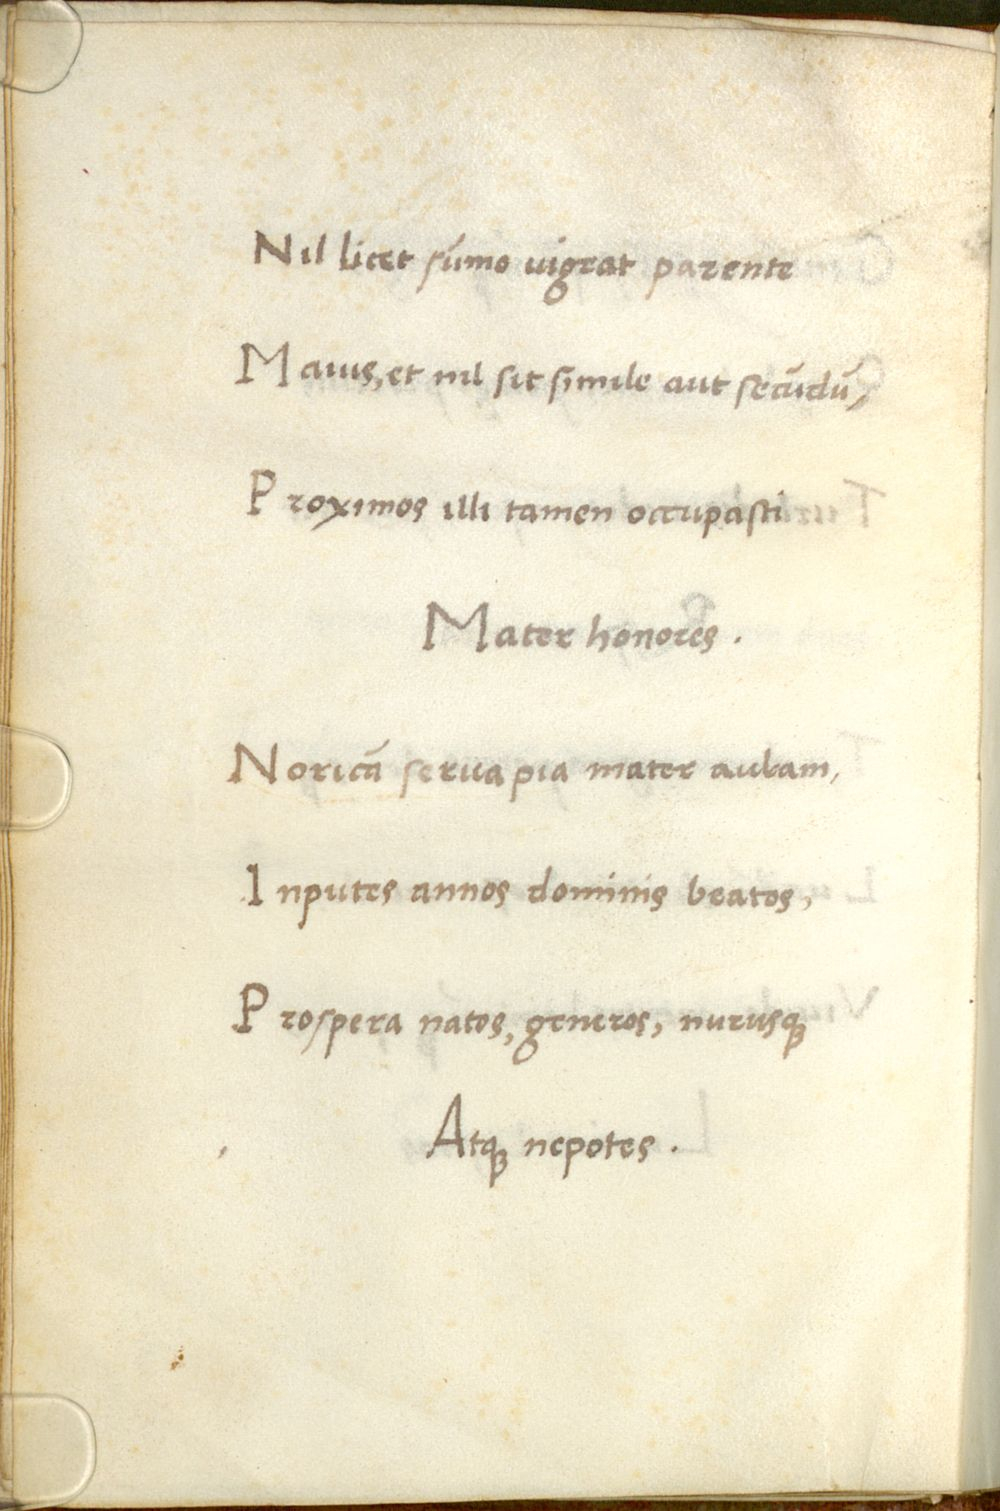 Nil licet sūmo uigeat parente
Maius, et nil sit simile aut secūdū,
Proximos illi tamen occupasti
Mater honores.
Noricā serua pia mater aulam,
Inputes annos dominis beatos,
Prospera natos, generos, nurusqꝫ
Atqꝫ nepotes.